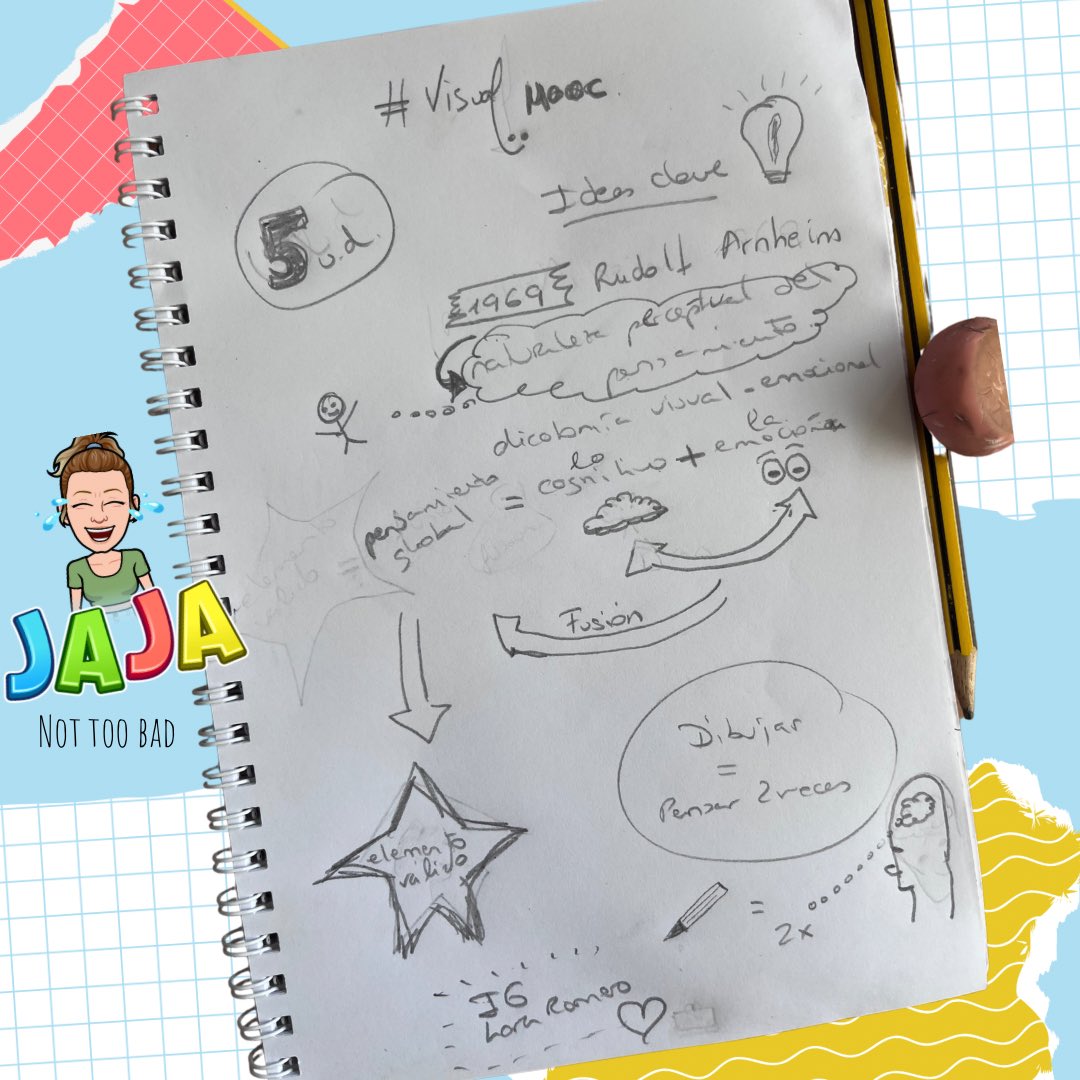 # Visual Mooc
Ideas clave
5 u.d.
1969 Rudolf Arnheim
naturaleza perceptual del
pensamiento
dicotomía visual - emocional
pensamiento global = lo cognitivo + la emoción
Fusión
JAJA
NOT TOO BAD
Dibujar
=
Pensar 2 veces
elemento
válido
= 2x
IG
Lora Romero